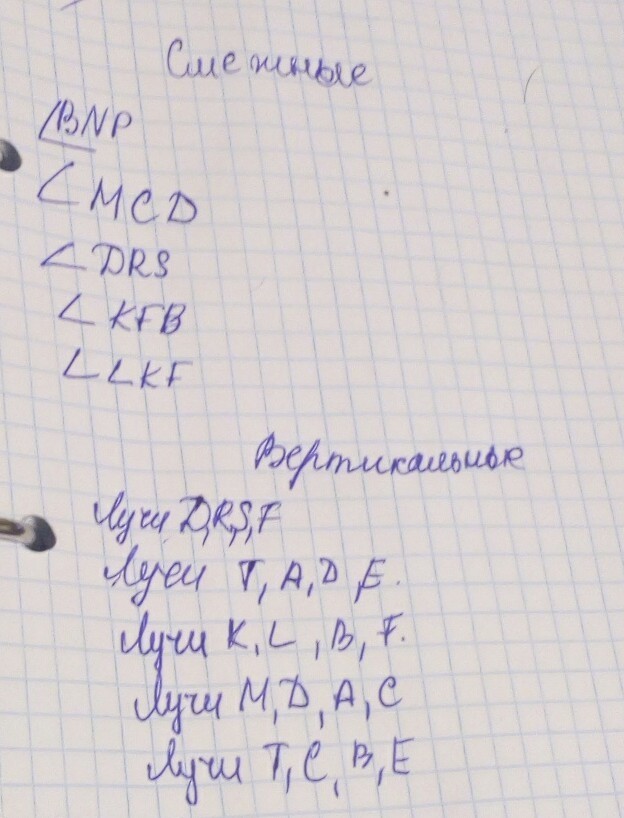 Смежные
∠BNP
∠MCD
∠DRS
∠KFB
∠LKF
Вертикальные
Лучи D,R,S,F
Лучи T, A, D, E.
Лучи K, L, B, F.
Лучи M, D, A, C
Лучи T, C, B, E